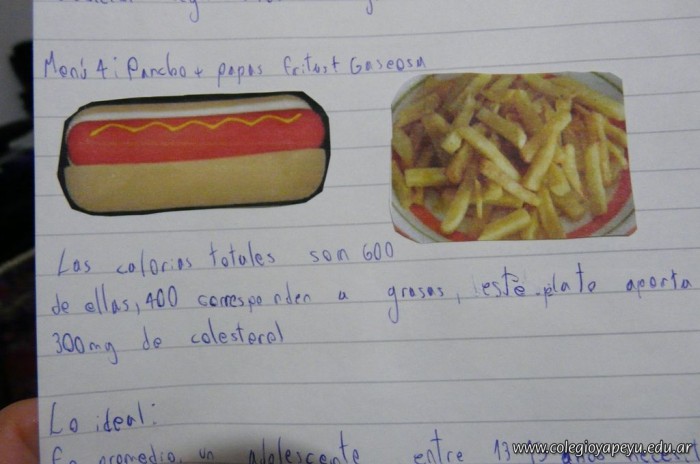 Menú 4: Pancho + papas fritas + Gaseosa
Las calorias totales son 600
de ellas, 400 corresponden a grasas, este plato aporta
300mg de colesterol
Lo ideal:
En promedio, un adolescente entre 13
www.colegioyapeyu.edu.ar